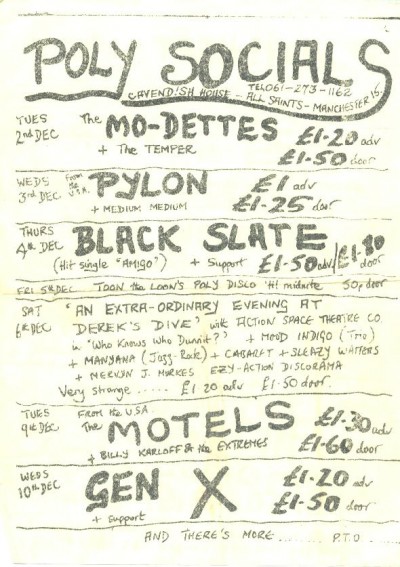 POLY SOCIALS
CAVENDISH HOUSE - TEL 061-273-1162
ALL SAINTS - MANCHESTER 15.
TUES
2nd DEC
The MO-DETTES £1·20 adv
+ The TEMPER £1·50 door
WEDS
3rd DEC
From the U.S.A. PYLON £1 adv
+ MEDIUM MEDIUM £1·25 door
THURS
4th DEC
BLACK SLATE
(Hit single "AMIGO") + Support £1·50 adv/ door
FRI 5th DEC TOON the LOON'S POLY DISCO 'til midnite 50p door
SAT
6th DEC
'AN EXTRA-ORDINARY EVENING AT
DEREK'S DIVE' with ACTION SPACE THEATRE CO.
in "Who Knows Who Dunnit?" + MOOD INDIGO (Trio)
+ MANYANA (Jazz-Rock) + CABARET + SLEAZY WAITERS
+ MERVYN J. EZY-ACTION DISCORAMA
Very strange ..... £1·20 adv £1·50 door.
TUES
9th DEC
From the U.S.A
The MOTELS £1·30 adv
+ BILLY KARLOFF & the EXTREMES £1·60 door
WEDS
10th DEC
GEN X £1·20 adv
+ Support £1·50 door
AND THERE'S MORE ........ P.T.O